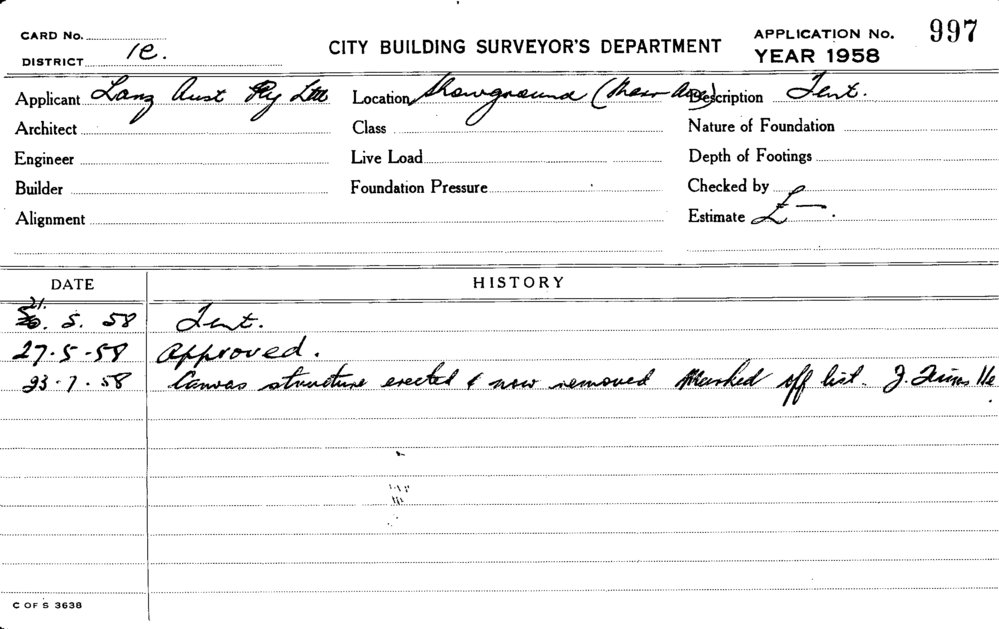 CARD No.
DISTRICT 1e.
CITY BUILDING SURVEYOR'S DEPARTMENT
APPLICATION No. 997
YEAR 1958
Applicant Lanz Aust Pty Ltd
Location Showground
Description Tent.
Architect
Class
Nature of Foundation
Engineer
Live Load
Depth of Footings
Builder
Foundation Pressure
Checked by
Alignment
Estimate £ —.
DATE
HISTORY
21. 5. 58 Tent.
27-5-58 Approved.
23-7-58 Canvas structure erected & now removed Marked off list. J.
C OF S 3638